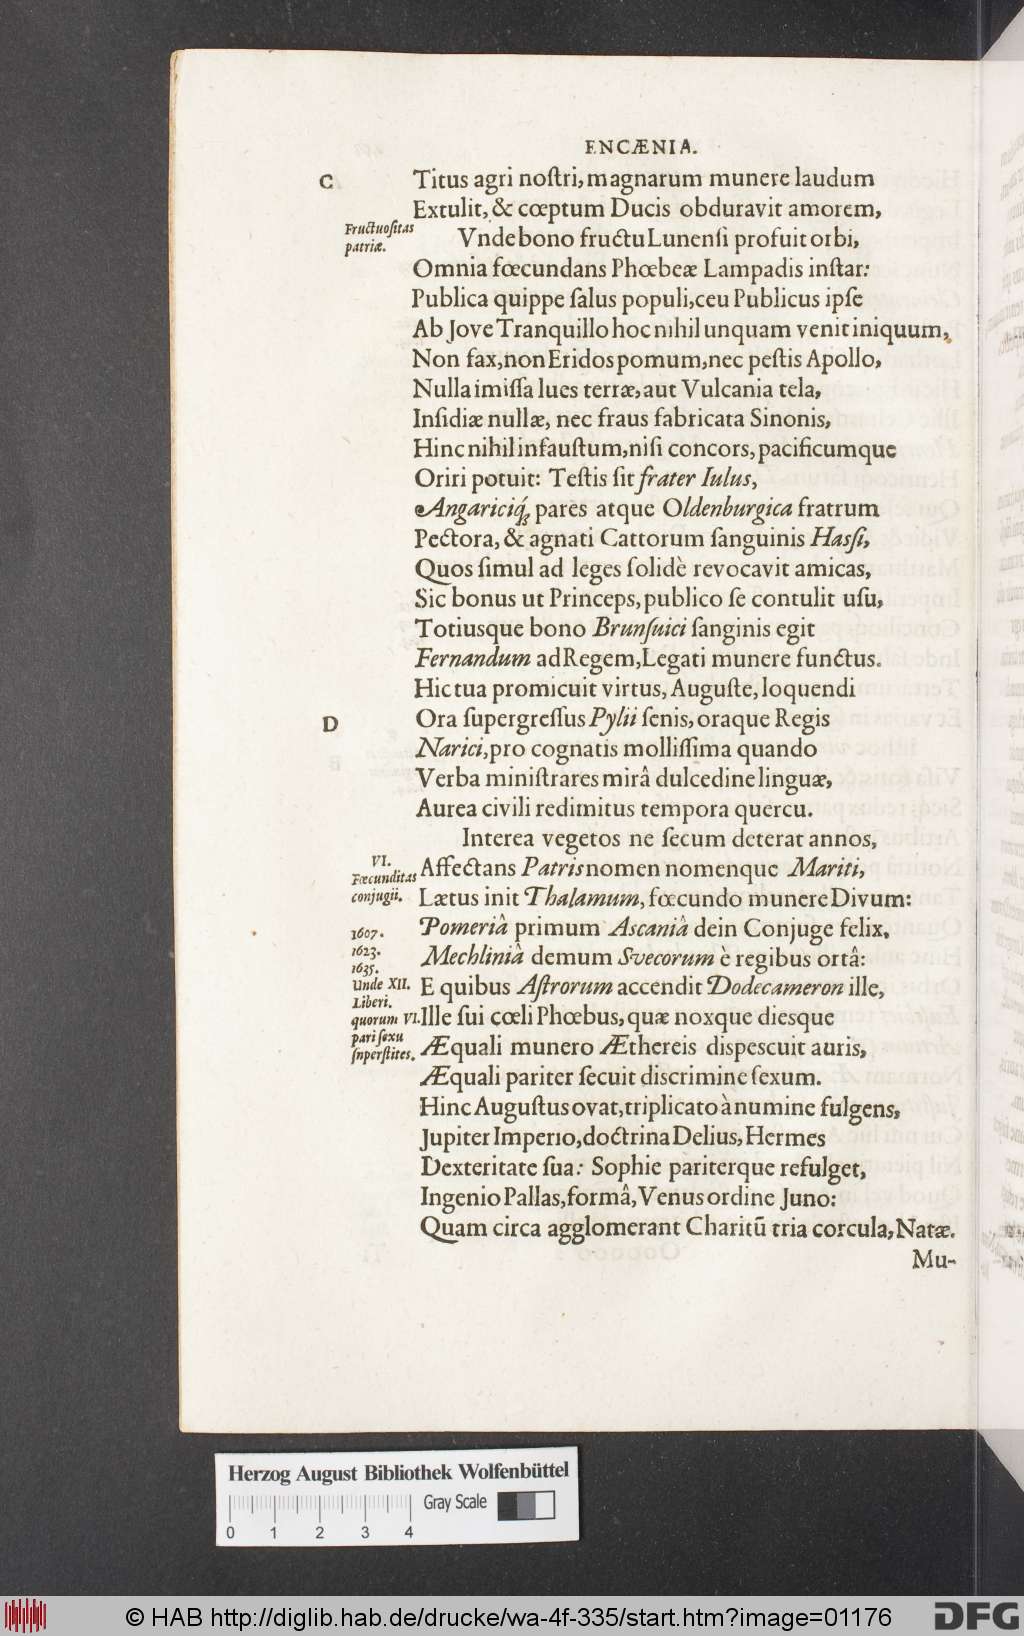 ENCÆNIA.
C
Titus agri noſtri, magnarum munere laudum
Extulit, & cœptum Ducis obduravit amorem,
Fructuoſitas
patriæ.
Vnde bono fructu Lunenſi profuit orbi,
Omnia fœcundans Phœbeæ Lampadis inſtar:
Publica quippe ſalus populi, ceu Publicus ipſe
Ab Jove Tranquillo hoc nihil unquam venit iniquum,
Non fax, non Eridos pomum, nec peſtis Apollo,
Nulla imiſſa lues terræ, aut Vulcania tela,
Inſidiæ nullæ, nec fraus fabricata Sinonis,
Hinc nihil infauſtum, niſi concors, pacificumque
Oriri potuit: Teſtis ſit frater Iulus,
Angariciq́; pares atque Oldenburgica fratrum
Pectora, & agnati Cattorum ſanguinis Haſſi,
Quos ſimul ad leges ſolidè revocavit amicas,
Sic bonus ut Princeps, publico ſe contulit uſu,
Totiusque bono Brunſuici ſanginis egit
Fernandum ad Regem, Legati munere functus.
Hic tua promicuit virtus, Auguſte, loquendi
D
Ora ſupergreſſus Pylii ſenis, oraque Regis
Narici, pro cognatis molliſſima quando
Verba miniſtrares mirâ dulcedine linguæ,
Aurea civili redimitus tempora quercu.
Interea vegetos ne ſecum deterat annos,
VI.
Fœcunditas
conjugii.
Affectans Patris nomen nomenque Mariti,
Lætus init Thalamum, fœcundo munere Divum:
1607.
Pomeriâ primum Ascaniâ dein Conjuge felix,
1623.
Mechliniâ demum Svecorum è regibus ortâ:
1635.
Unde XII.
Liberi.
E quibus Aſtrorum accendit Dodecameron ille,
quorum VI.
Ille ſui cœli Phœbus, quæ noxque diesque
pari ſexu
ſnperſtites.
Æquali munero Æthereis dispescuit auris,
Æquali pariter ſecuit discrimine ſexum.
Hinc Auguſtus ovat, triplicato à numine fulgens,
Jupiter Imperio, doctrina Delius, Hermes
Dexteritate ſua: Sophie pariterque refulget,
Ingenio Pallas, formâ, Venus ordine Juno:
Quam circa agglomerant Charitũ tria corcula, Natæ.
Mu-
Herzog August Bibliothek Wolfenbüttel
Gray Scale
0 1 2 3 4
© HAB http://diglib.hab.de/drucke/wa-4f-335/start.htm?image=01176
DFG